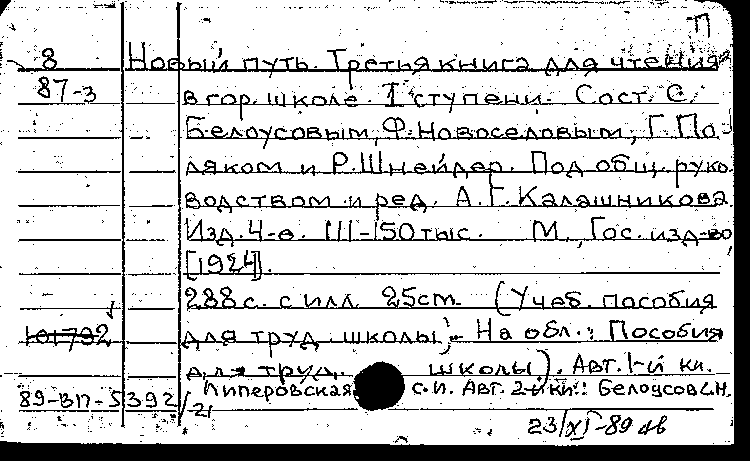 П
8 Новый путь. Третья книга для чтения
87-3 в гор. школе I ступени. Сост. С.
Белоусовым, Ф. Новоселовым, Г. По-
ляком и Р. Шнейдер. Под общ. руко-
водством и ред. А.Г. Калашникова
Изд. 4-е. 111-150 тыс. М., Гос. изд-во,
[1924].
288 с. с илл. 25cm. (Учеб. пособия
101792 для труд. школы).- На обл.: Пособия
для труд. школы). Авт. 1-й кн.
Липеровская С.И. Авт. 2-й кн.: Белоусов С.Н.
89-ВП-5392/21
23/XI-89